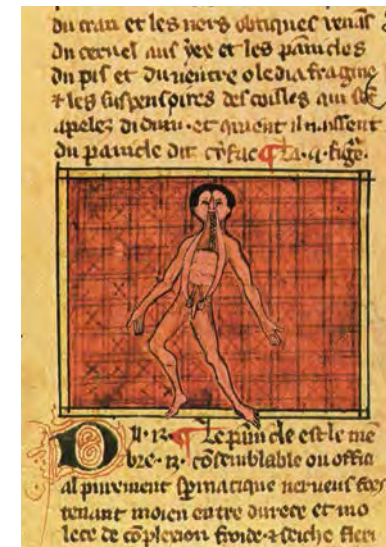 du cran et les ners obtiques venās
du cervel aus yex et les pānicles
du pis et du ventre o le diafragme
⁊ les suspensoires des coilles qui sōt
apelez didimi · et quient il naissent
du panicle dit cyfac ¶ La · q̣ · figẹ̄ ·
D U · 12 · ¶ Le panicle est le mē
bre · 12 · cōsemblable ou offici
al purement spmatique nerveus soy
tenant moien entre durece et mo
lece de cōplexion froide ⁊ seiche